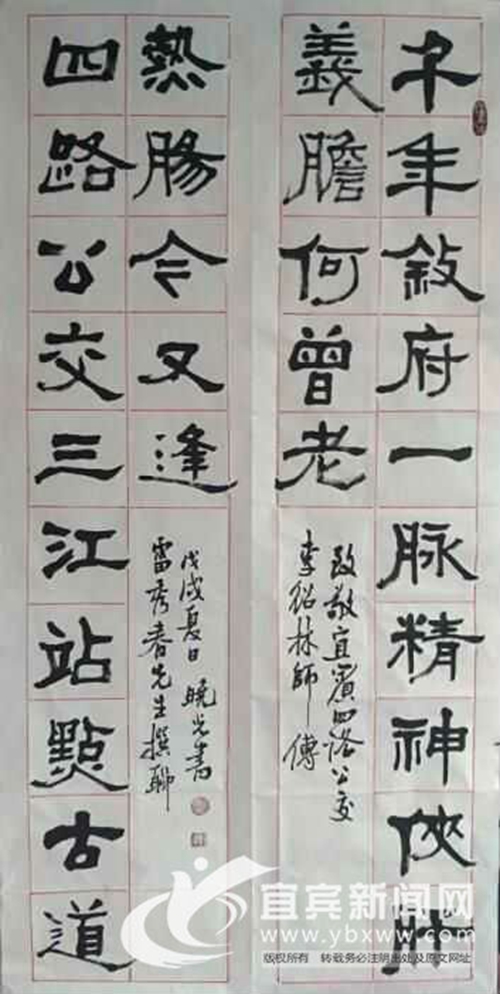 千年敘府一脉精神俠肝
義膽何曾老
致敬宜賓四路公交
李紹林師傅
四路公交三江站點古道
熱腸今又逢
雷秀春先生撰聯
戊戌夏日 曉光書
宜宾新闻网
www.ybxww.com
版权所有 转载务必注明出处及原文网址